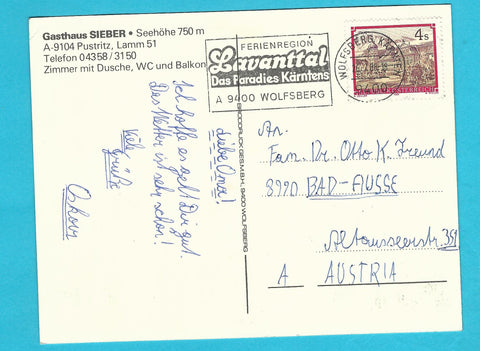 Gasthaus SIEBER • Seehöhe 750 m
A-9104 Pustritz, Lamm 51
Telefon 04358 / 3150
Zimmer mit Dusche, WC und Balkon
FERIENREGION
Lavanttal
Das Paradies Kärntens
A 9400 WOLFSBERG
WOLFSBERG, KÄRNTEN
9400
4s
Liebe Oma!
Ich hoffe es geht Dir gut.
Das Wetter ist sehr schön!
Viele
Grüße
An
Fam. Dr. Otto K. Freund
8990 BAD-AUSSE
Altausseerstr. 351
A AUSTRIA